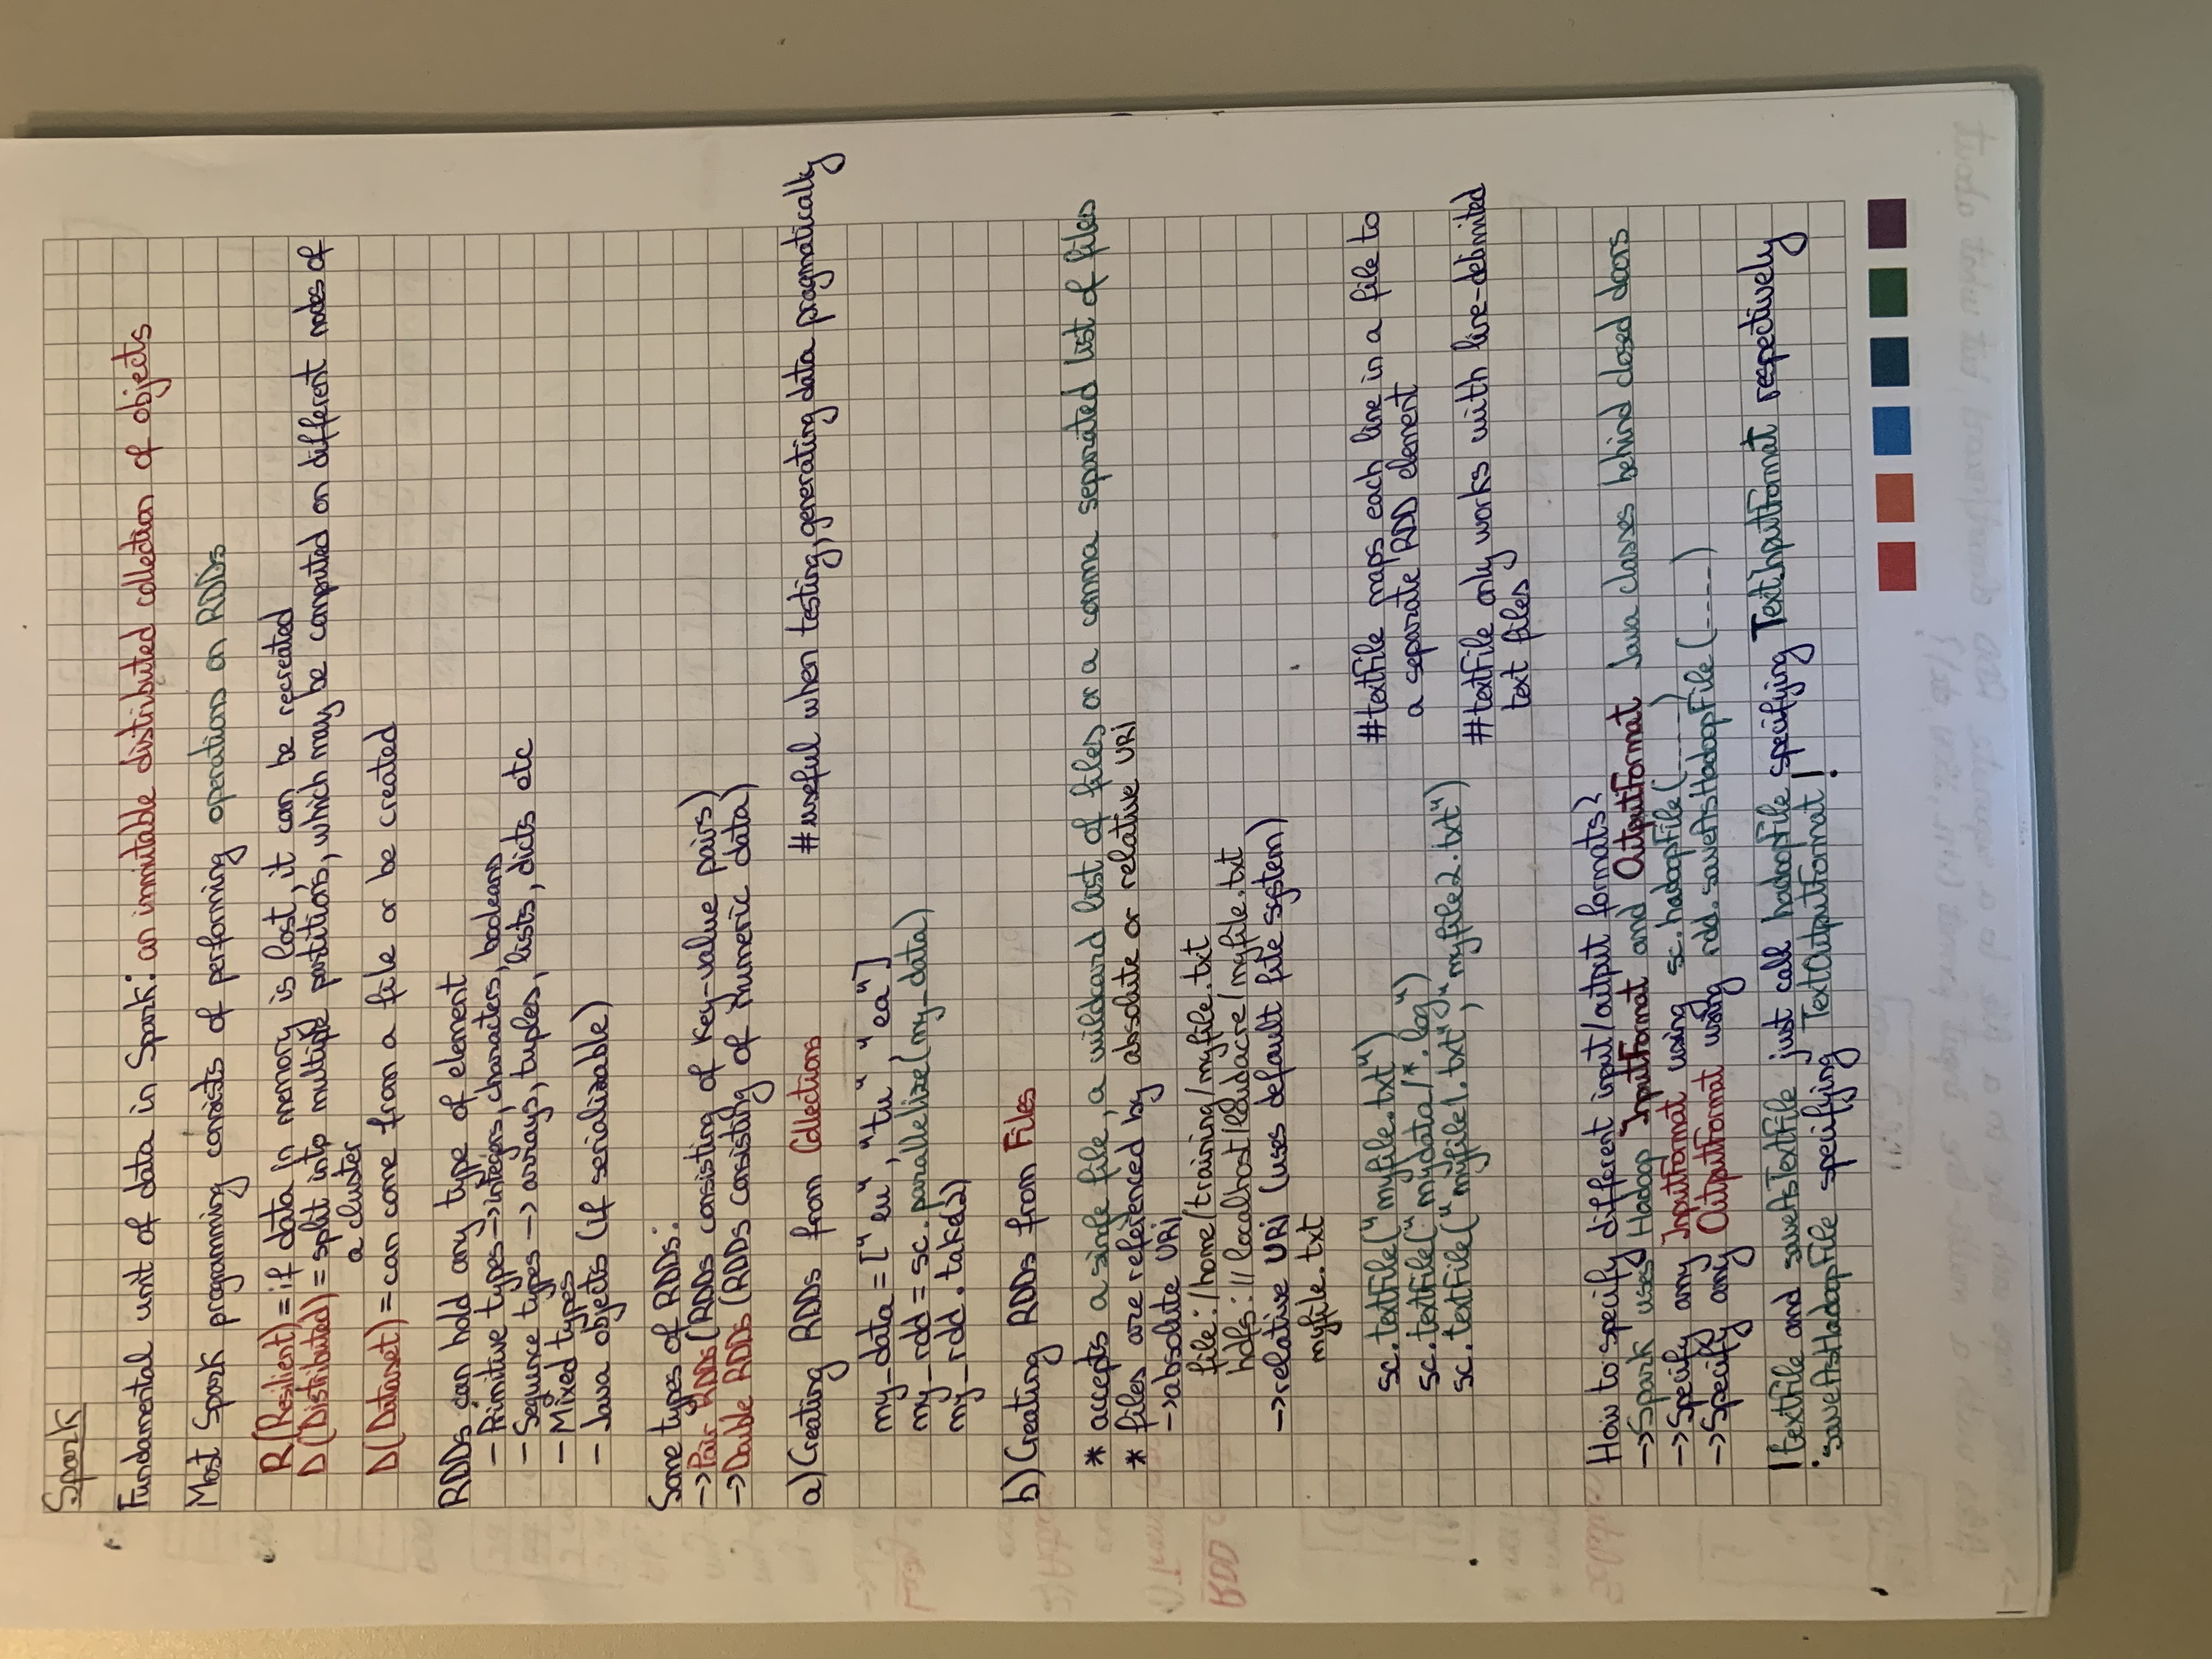 Spark
Fundamental unit of data in Spark: an immutable distributed collection of objects
Most Spark programming consists of performing operations on RDDs
R(Resilient) = if data in memory is lost, it can be recreated
D(Distributed) = split into multiple partitions, which may be computed on different nodes of
a cluster
D(Dataset) = can come from a file or be created
RDDs can hold any type of element
- Primitive types -> integers, characters, booleans
- Sequence types -> arrays, tuples, lists, dicts etc
- Mixed types
- Java objects (if serializable)
Some types of RDDs:
-> Pair RDDs (RDDs consisting of Key-value pairs)
-> Double RDDs (RDDs consisting of numeric data)
a) Creating RDDs from Collections #useful when testing, generating data pragmatically
my_data = ["eu", "tu", "ea"]
my_rdd = sc.parallelize(my_data)
my_rdd.take(2)
b) Creating RDDs from Files
* accepts a single file, a wildcard list of files or a comma separated list of files
* files are referenced by absolute or relative URi
-> absolute URi
file:/home/training/myfile.txt
hdfs://localhost/loudacre/myfile.txt
-> relative URi (uses default file system)
myfile.txt
sc.textFile("myfile.txt")
sc.textFile("mydata/*.log")
sc.textFile("myfile1.txt", "myfile2.txt")
#textFile maps each line in a file to
a separate RDD element
#textFile only works with line-delimited
text files
How to specify different input/output formats?
-> Spark uses Hadoop InputFormat and OutputFormat Java classes behind closed doors
-> Specify any InputFormat using sc.hadoopFile(----)
-> Specify any OutputFormat using rdd.saveAsHadoopFile(----)
! textFile and saveAsTextFile just call hadoopFile specifying TextInputFormat respectively
saveAsHadoopFile specifying TextOutputFormat!